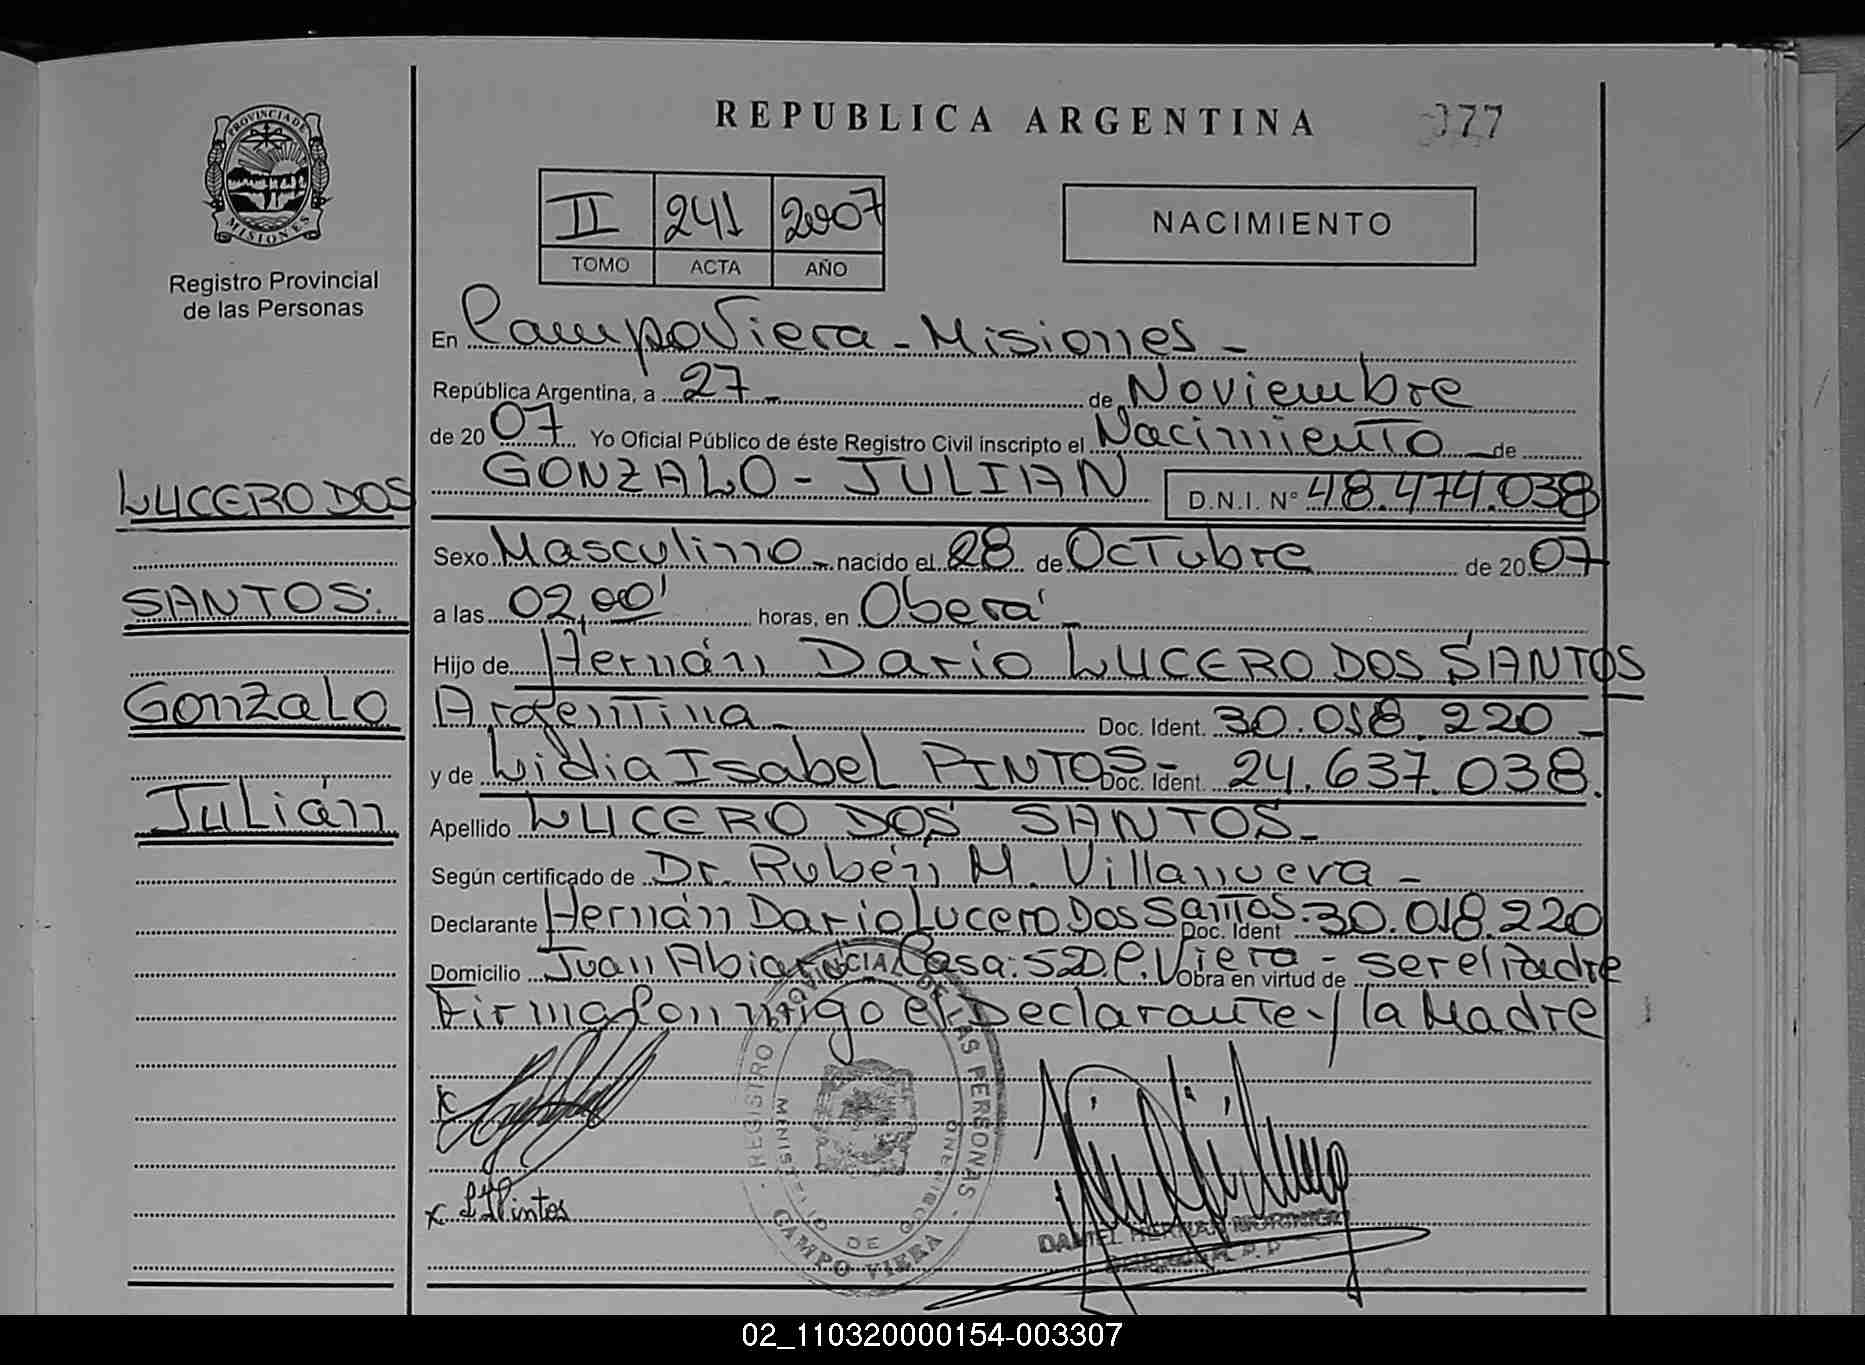 REPUBLICA ARGENTINA
377
PROVINCIA DE
MISIONES
Registro Provincial
de las Personas
II 241 2007
TOMO ACTA AÑO
NACIMIENTO
En Campo Viera - Misiones -
República Argentina, a 27 - de Noviembre
de 20 07 Yo Oficial Público de éste Registro Civil inscripto el Nacimiento de
GONZALO - JULIAN D.N.I. N° 48.474.038
LUCERO DOS
SANTOS:
Gonzalo
Julián
Sexo Masculino - nacido el 28 de Octubre de 20 07
a las 02,00' horas, en Oberá -
Hijo de Hernán Dario LUCERO DOS SANTOS
Argentina - Doc. Ident. 30.018.220 -
y de Lidia Isabel PINTOS - Doc. Ident. 24.637.038.
Apellido LUCERO DOS SANTOS -
Según certificado de Dr. Rubén M. Villanueva -
Declarante Hernán Dario Lucero Dos Santos - Doc. Ident 30.018.220
Domicilio Juan Abiar Casa: 52D. C. Viera - Obra en virtud de ser el Padre
Firma Conmigo el Declarante - / la Madre
x
x Pintos
REGISTRO PROVINCIAL DE LAS PERSONAS -
DE
CAMPO VIERA
DANIEL HERNAN
02_110320000154-003307